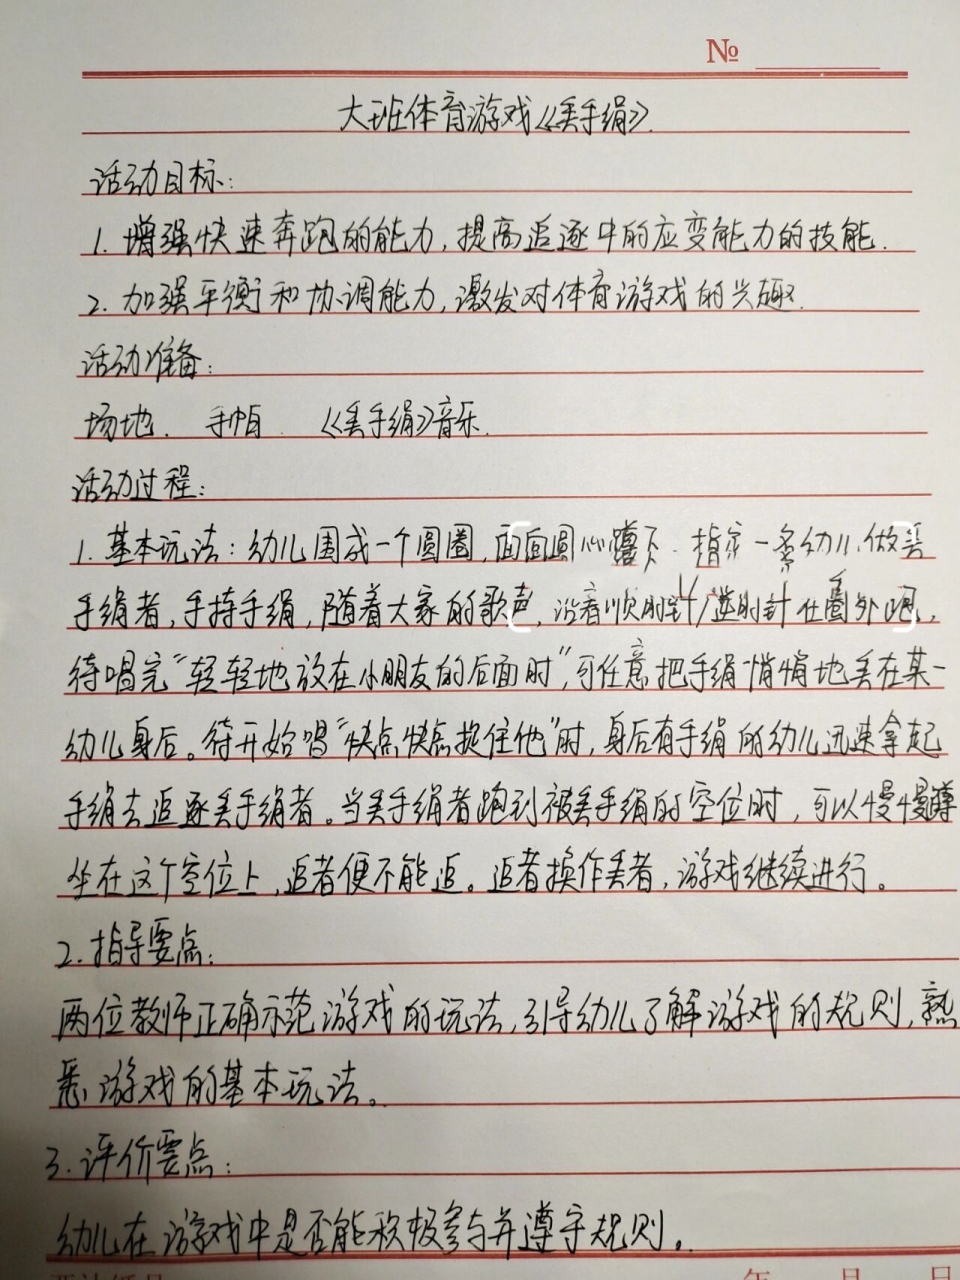 №
大班体育游戏《丢手绢》.
活动目标:
1. 增强快速奔跑的能力,提高追逐中的应变能力的技能.
2. 加强平衡和协调能力,激发对体育游戏的兴趣.
活动准备:
场地. 手帕. 《丢手绢》音乐.
活动过程:
1. 基本玩法:幼儿围成一个圆圈,面向圆心蹲下.指定一名幼儿做丢
手绢者,手持手绢,随着大家的歌声,沿着顺时针/逆时针在圈外跑,
待唱完"轻轻地放在小朋友的后面时",可任意把手绢悄悄地丢在某一
幼儿身后。待开始唱"快点快点捉住他"时,身后有手绢的幼儿迅速拿起
手绢去追逐丢手绢者。当丢手绢者跑到被丢手绢的空位时,可以慢慢蹲
坐在这个空位上,追者便不能追。追者换作丢者,游戏继续进行。
2. 指导要点:
两位教师正确示范游戏的玩法,引导幼儿了解游戏的规则,熟
悉游戏的基本玩法。
3. 评价要点:
幼儿在游戏中是否能积极参与并遵守规则。
年 月 日